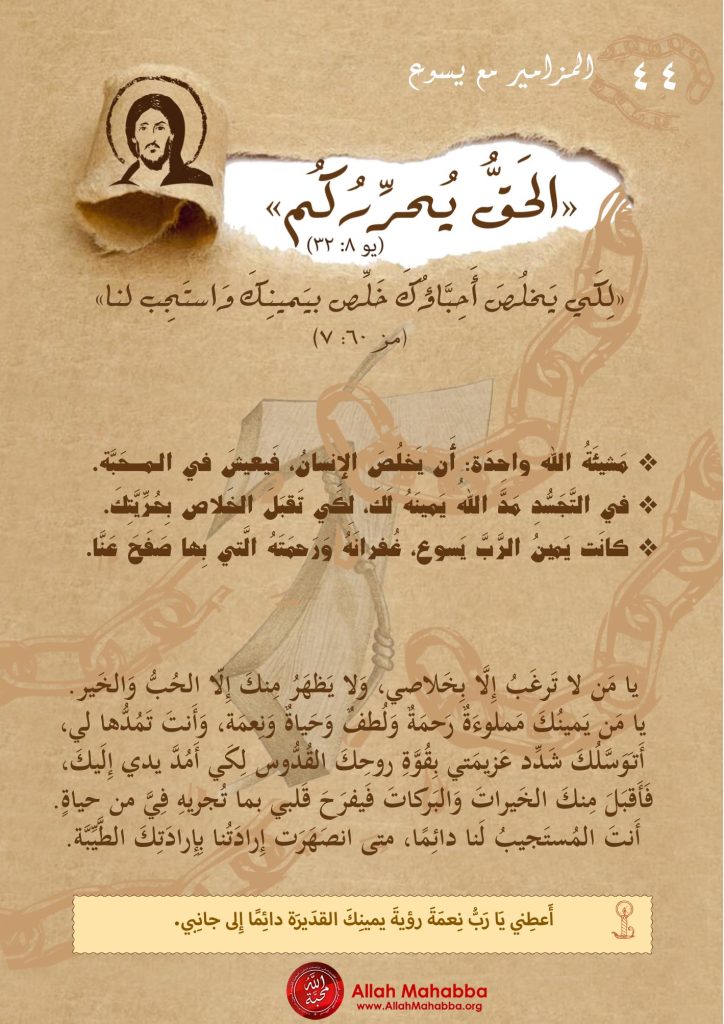 ٤٤ المزامير مع يسوع
«الحَقُّ يُحرِّرُكُم»
(يو ٨: ٣٢)
«لِكَي يَخلُصَ أَحِبَّاؤُكَ خَلِّص بيَمينِكَ وَاستَجِب لنا»
(مز ٦٠: ٧)
❖ مَشيئَةُ الله واحِدَة: أَن يَخلُصَ الإنسانُ، فَيعيشَ في المـحَبَّة.
❖ في التَّجَسُّدِ مَدَّ اللهُ يَمينَهُ لَكَ، لِكَي تَقبَلَ الخَلاص بِحُرِّيَّتِكَ.
❖ كانَت يَمينُ الرَّبَّ يَسوع، غُفرانَهُ وَرَحمَتَهُ الَّتي بِها صَفحَ عَنَّا.
يا مَن لا تَرغَبُ إِلَّا بِخَلاصي، وَلا يَظهَرُ مِنكَ إِلّا الحُبُّ وَالخَير.
يا مَن يَمينُكَ مَملوءَةٌ رَحمَةٌ وَلُطفٌ وَحَياةٌ وَنِعمَة، وَأَنتَ تَمُدُّها لي،
أَتَوَسَّلُكَ شَدِّد عَزيمَتي بِقُوَّةِ روحِكَ القُدُّوس لِكَي أَمُدَّ يدي إِلَيكَ،
فَأَقبَلَ مِنكَ الخَيراتَ وَالبَركاتَ فَيفرَحَ قَلبي بما تُجريهِ فِيَّ من حياةٍ.
أَنتَ المُستَجيبُ لَنا دائِمًا، متى انصَهَرَت إِرادَتُنا بِإِرادَتِكَ الطَّيِّبَة.
أَعطِني يَا رَبُّ نِعمَةَ رؤيةَ يمينِكَ القدَيرَة دائِمًا إِلى جانِبي.
الله محبة
Allah Mahabba
www.AllahMahabba.org